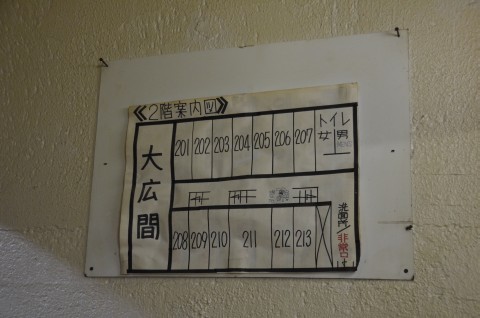 《2階案内図》
大広間
201 202 203 204 205 206 207
トイレ
女 男
208 209 210 211 212 213
洗面所
非常口